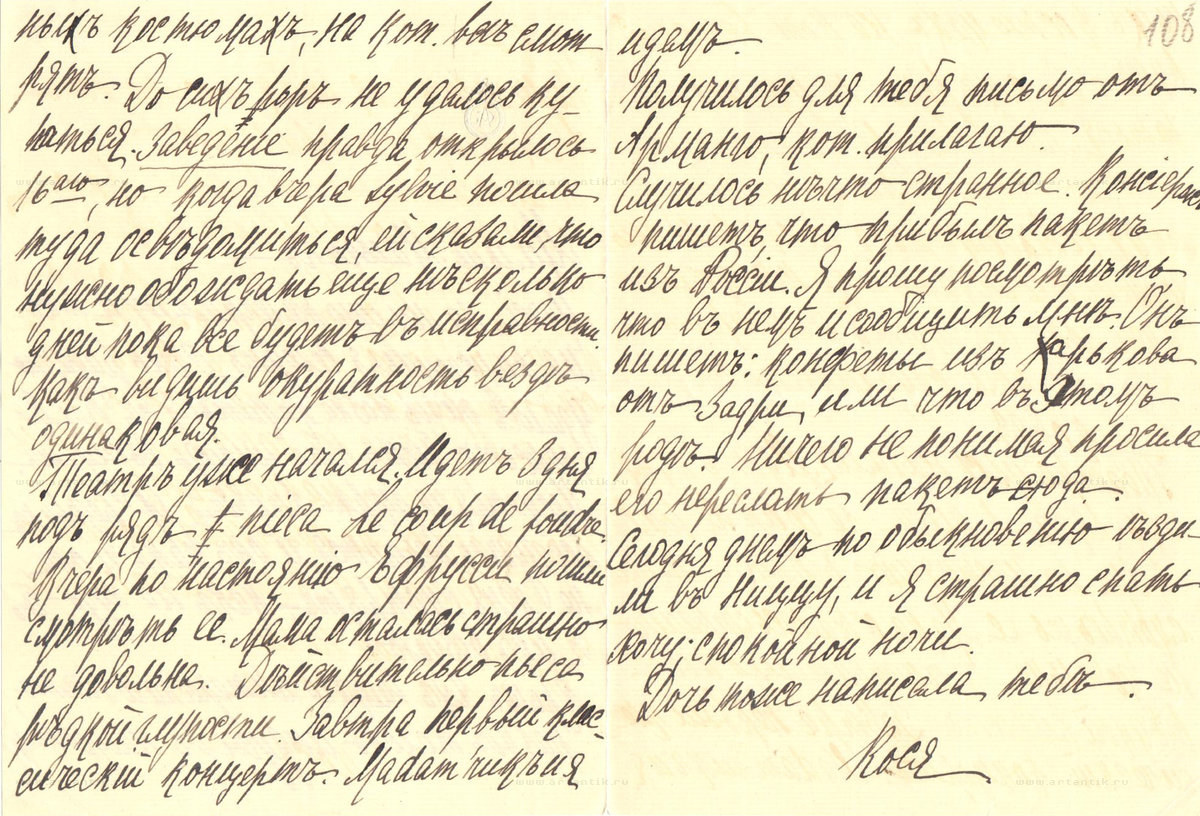 ныхъ костюмахъ, на кот. всѣ смот
рятъ. До сихъ поръ не удалось ку-
паться. Заведеніе правда открылось
16аго, но когда вчера Sylvie пошла
туда освѣдомиться, ей сказали, что
нужно обождать еще нѣсколько
дней пока все будетъ въ исправности.
Какъ видишь окуратность вездѣ
одинаковая.
Театръ уже начался. Идетъ 3 дня
подъ рядъ піеса Le coup de foudre.
Вчера по настоянію Эфрусси пошли
смотрѣть ее. Мама осталась страшно
не довольна. Дѣйствительно пьеса
рѣдкой глупости. Завтра первый клас-
сическій концертъ. Madam'
108
идемъ.
Получилось для тебя письмо отъ
Арманго, кот. прилагаю.
Случилось нѣчто странное. Консіержъ
пишетъ, что прибылъ пакетъ
изъ Россіи. Я прошу посмотрѣть
что въ немъ и сообщить мнѣ. Онъ
пишетъ: конфеты изъ Харькова
отъ Задри, или что въ этомъ
родѣ. Ничего не понимая просила
его переслать пакетъ сюда.
Сегодня днемъ по обыкновенію ѣзди-
ли въ Ниццу, и я страшно спать
хочу; спокойной ночи.
Дочь тоже написала тебѣ.
Кося
www.artantik.ru